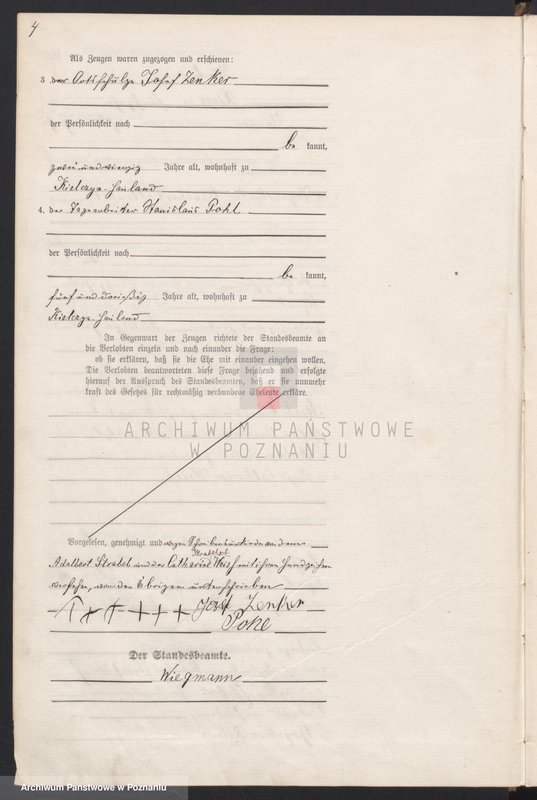 4
Als Zeugen waren zugezogen und erschienen:
3 der Ortsschulze Josef Zenker
der Persönlichkeit nach
be kannt,
zwei und vierzig Jahre alt, wohnhaft zu
Kielczyn-Hauland
4. der Tagearbeiter Stanislaus Pohl
der Persönlichkeit nach
be kannt,
fünf und dreißig Jahre alt, wohnhaft zu
Kielczyn-Hauland
In Gegenwart der Zeugen richtete der Standesbeamte an
die Verlobten einzeln und nach einander die Frage:
ob sie erklären, daß sie die Ehe mit einander eingehen wollen.
Die Verlobten beantworteten diese Frage bejahend und erfolgte
hierauf der Ausspruch des Standesbeamten, daß er sie nunmehr
kraft des Gesetzes für rechtmäßig verbundene Eheleute erkläre.
ARCHIWUM PAŃSTWOWE
W POZNANIU
Vorgelesen, genehmigt und wegen Schreibensunkunde von dem
Adalbert und der Catharina mit ihren Handzeichen
versehen, von den Übrigen unterschrieben
+++ +++ Josef Zenker
Pohl
Der Standesbeamte.
Wiegmann
Archiwum Państwowe w Poznaniu